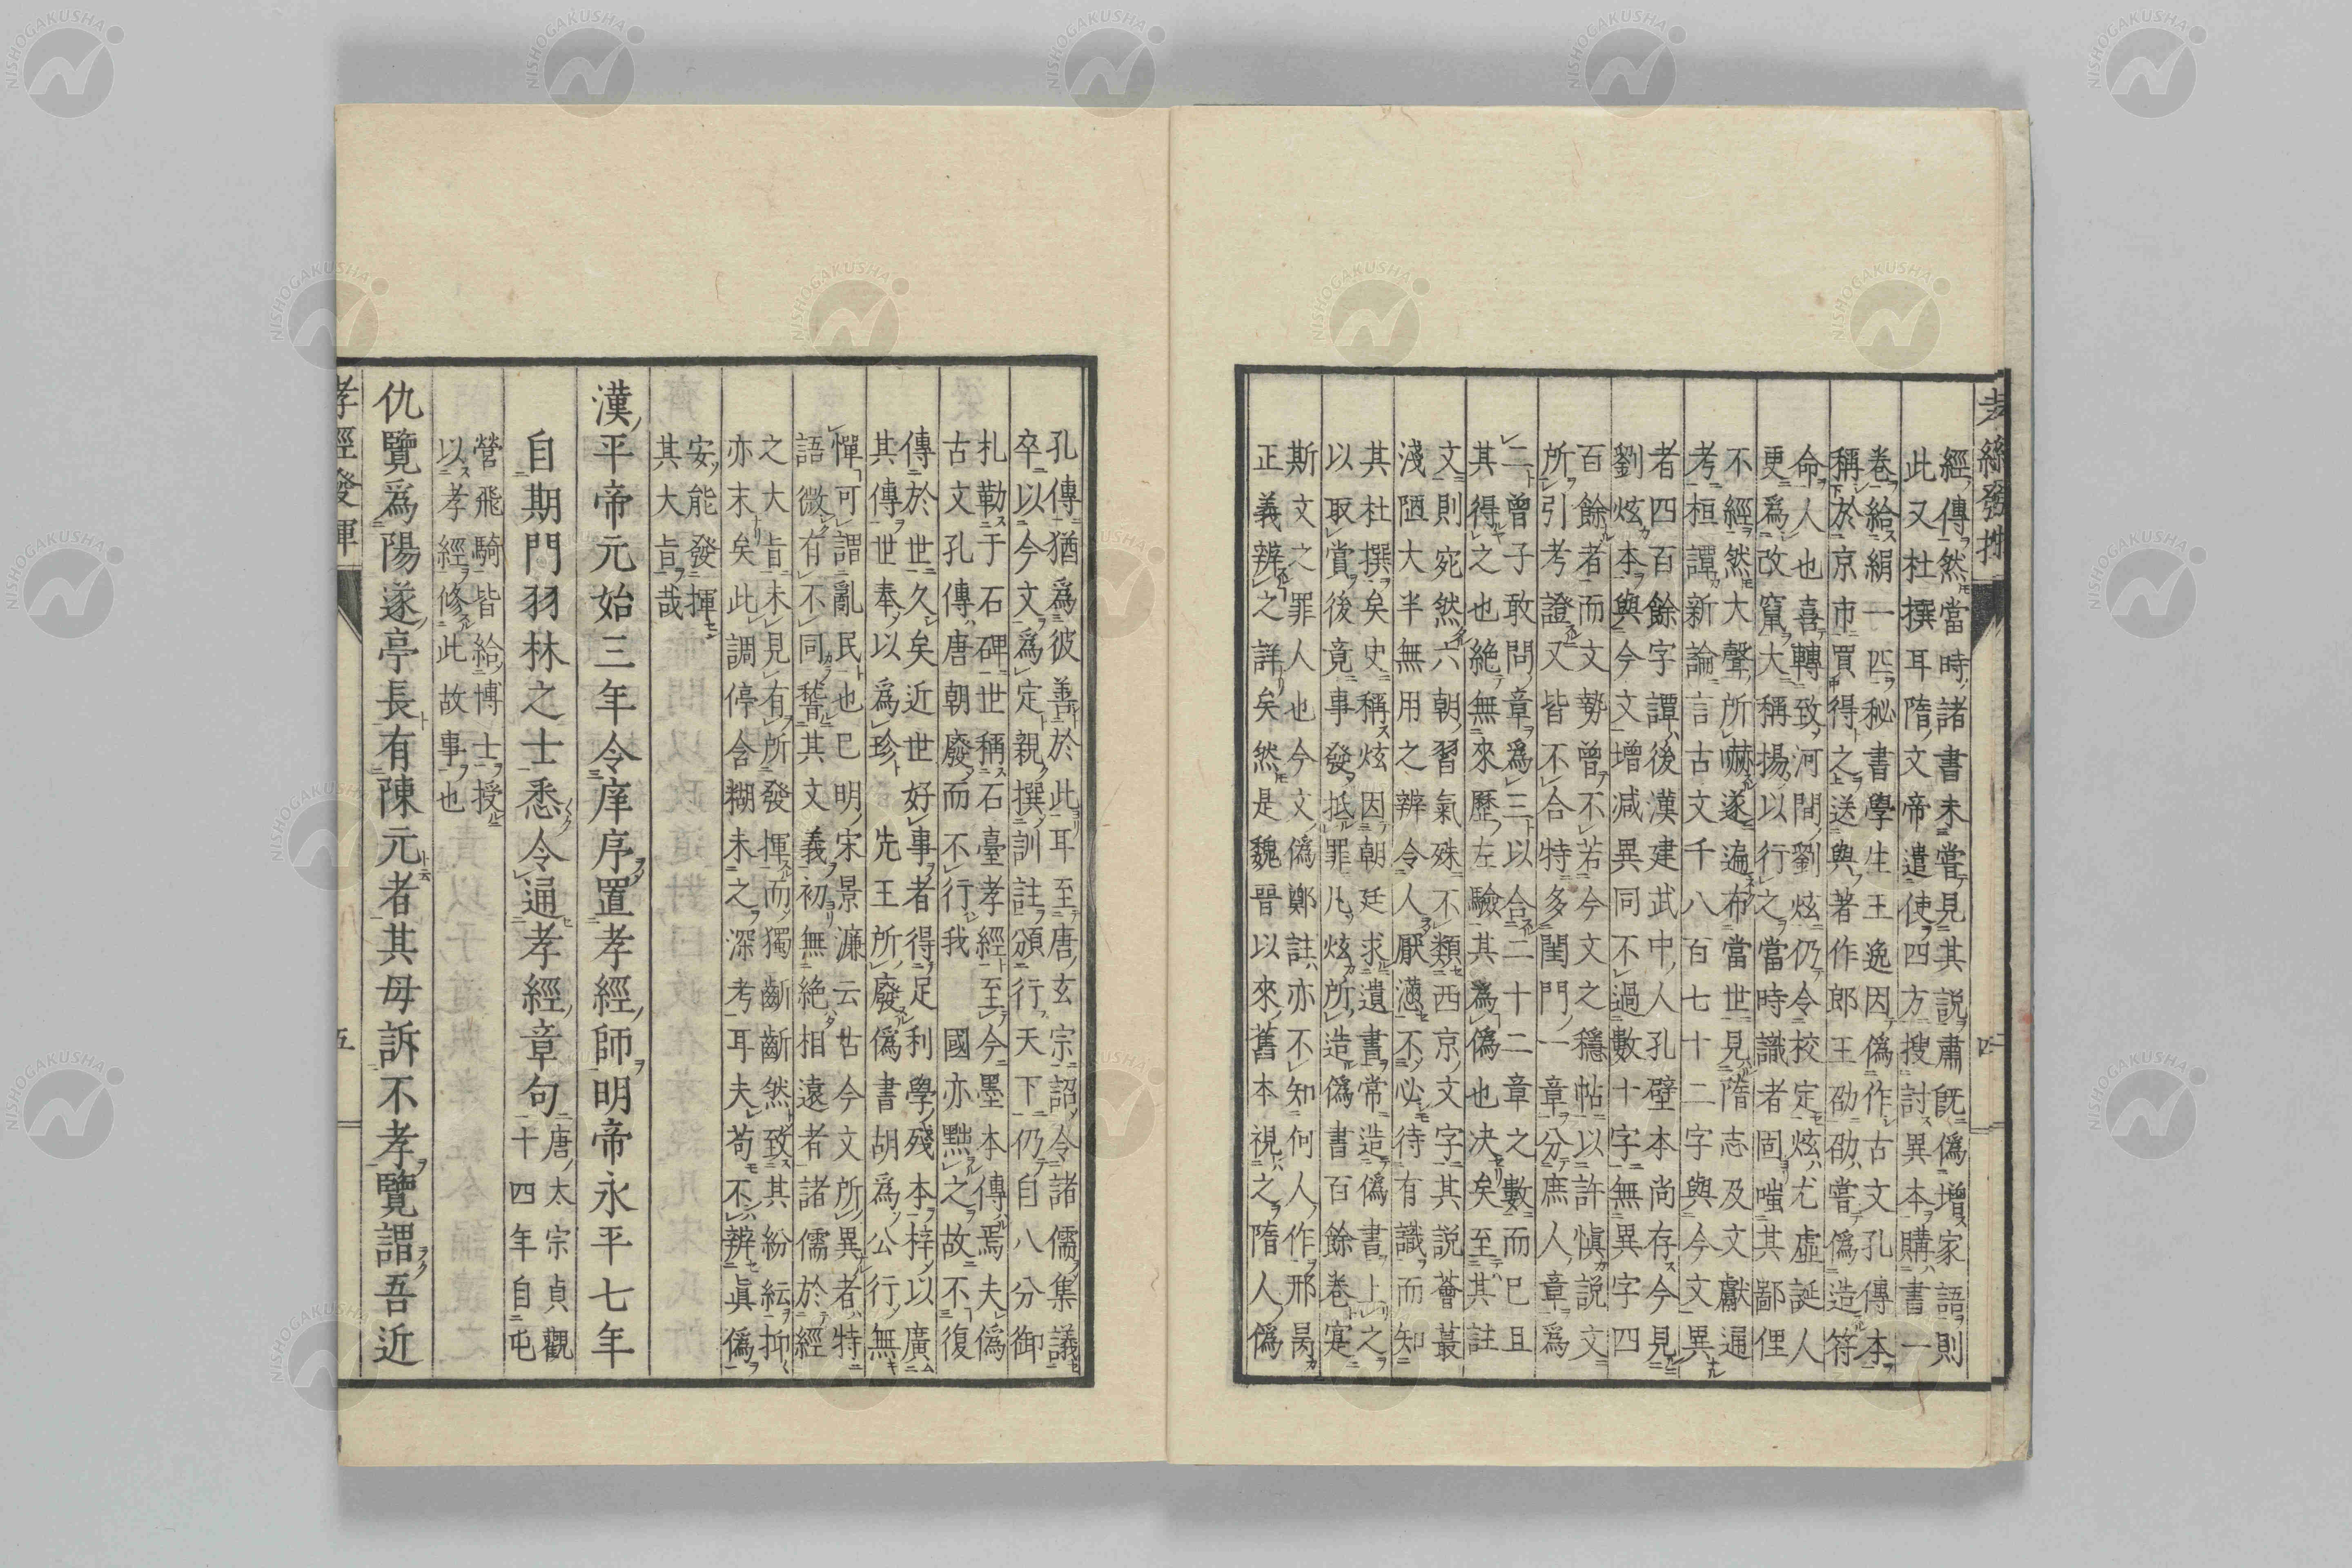 經傳然當時諸書未嘗見其說肅旣僞增家語則
此又杜撰耳隋文帝遣使四方搜討異本購書一
卷給絹一匹秘書學生王逸因僞作古文孔傳本
稱於京市買得之送與著作郎王劭劭嘗僞造符
命人也喜轉致河間劉炫仍令校定炫尤虛誕人
更爲改竄大稱揚以行之當時識者固嗤其鄙俚
不經然大聲所嚇遂遍布當世見隋志及文獻通
考桓譚新論言古文千八百七十二字與今文異
者四百餘字譚後漢建武中人孔壁本尚存今見
劉炫本與今文增減異同不過數十字無異字四
百餘者而文勢曾不若今文之穩帖以許愼說文
所引考證又皆不合特多閨門一章分庶人章爲
二曾子敢問章爲三以合二十二章之數而已且
其得之也絶無來歷左驗其爲僞也決矣至其註
文則宛然六朝習氣殊不類西京文字其說薈蕞
淺陋大半無用之辨令人厭懣不必待有識而知
其杜撰矣史稱炫因朝廷求遺書常造僞書上之
以取賞後竟事發抵罪凡炫所造僞書百餘卷寔
斯文之罪人也今文僞鄭註亦不知何人作邢昺
正義辨之詳矣然是魏晉以來舊本視之隋人僞
孔傳猶爲彼善於此耳至唐玄宗詔令諸儒集議
卒以今文爲定親撰訓註頒行天下仍自八分御
札勒于石碑世稱石臺孝經至今墨本傳焉夫僞
古文孔傳唐朝廢而不行我 國亦黜之故不復
傳於世久矣近世好事者得足利學殘本梓以廣
其傳世奉以爲珍先王所廢僞書胡爲公行無
憚可謂亂民也已明宋景濂云古今文所異者特
語微有不同稽其文義初無絶相遠者諸儒於經
之大旨未見有所發揮而獨齗齗然致其紛紜抑
亦末矣此調停含糊未之深考耳夫苟不辨眞僞
安能發揮
其大旨哉
漢平帝元始三年令庠序置孝經師明帝永平七年
自期門羽林之士悉令通孝經章句
唐太宗貞觀
十四年自屯
營飛騎皆給博士授
以孝經修此故事也
仇覽爲陽遂亭長有陳元者其母訴不孝覽謂吾近
孝經發揮
五